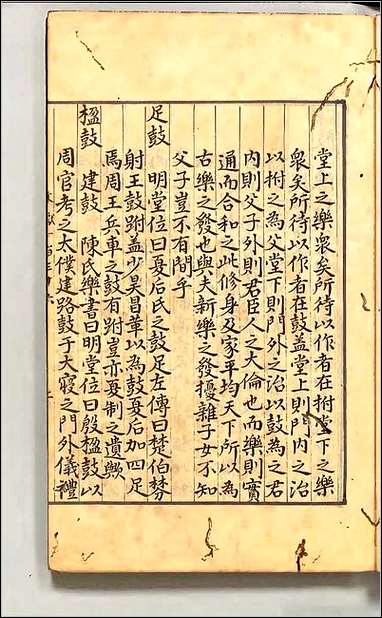 堂上之樂衆矣所待以作者在拊堂下之樂
衆矣所待以作者在鼓盖堂上則門内之治
以拊之為父堂下則門外之治以鼓為之君
内則父子外則君臣人之大倫也而樂則實
通而合和之此修身及家平均天下所以為
古樂之發也與夫新樂之發擾雜子女不知
父子豈不有間乎
足鼓　明堂位曰夏后氏之鼓足左傳曰楚伯棼
射王鼓跗盖少昊昌華以為鼓夏后加四足
焉周王兵車之鼓有跗豈亦夏制之遺歟
楹鼓　建鼓　陳氏樂書曰明堂位曰殷楹鼓以
周官考之太僕建路鼓于大寢之門外儀禮